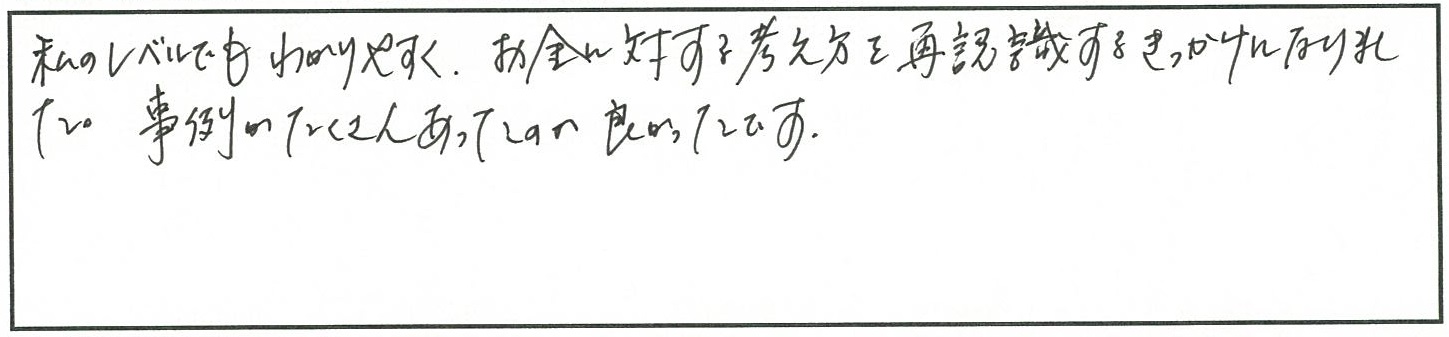 私のレベルでもわかりやすく、お金に対する考え方を再認識するきっかけになりまし
た。事例がたくさんあったのが良かったです。